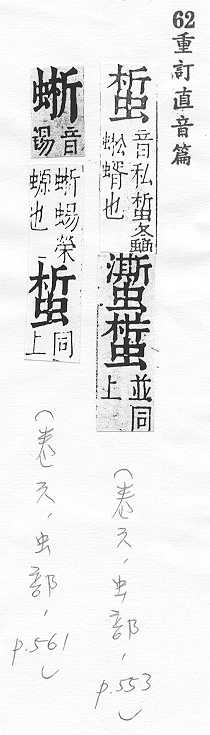 62重訂直音篇
蜤 音私蜤螽蜙蝑也 並同上
(卷六,虫部,p.553)
蜥 音錫 蜥蜴榮螈也 蜤 同上
(卷六,虫部,p.561)